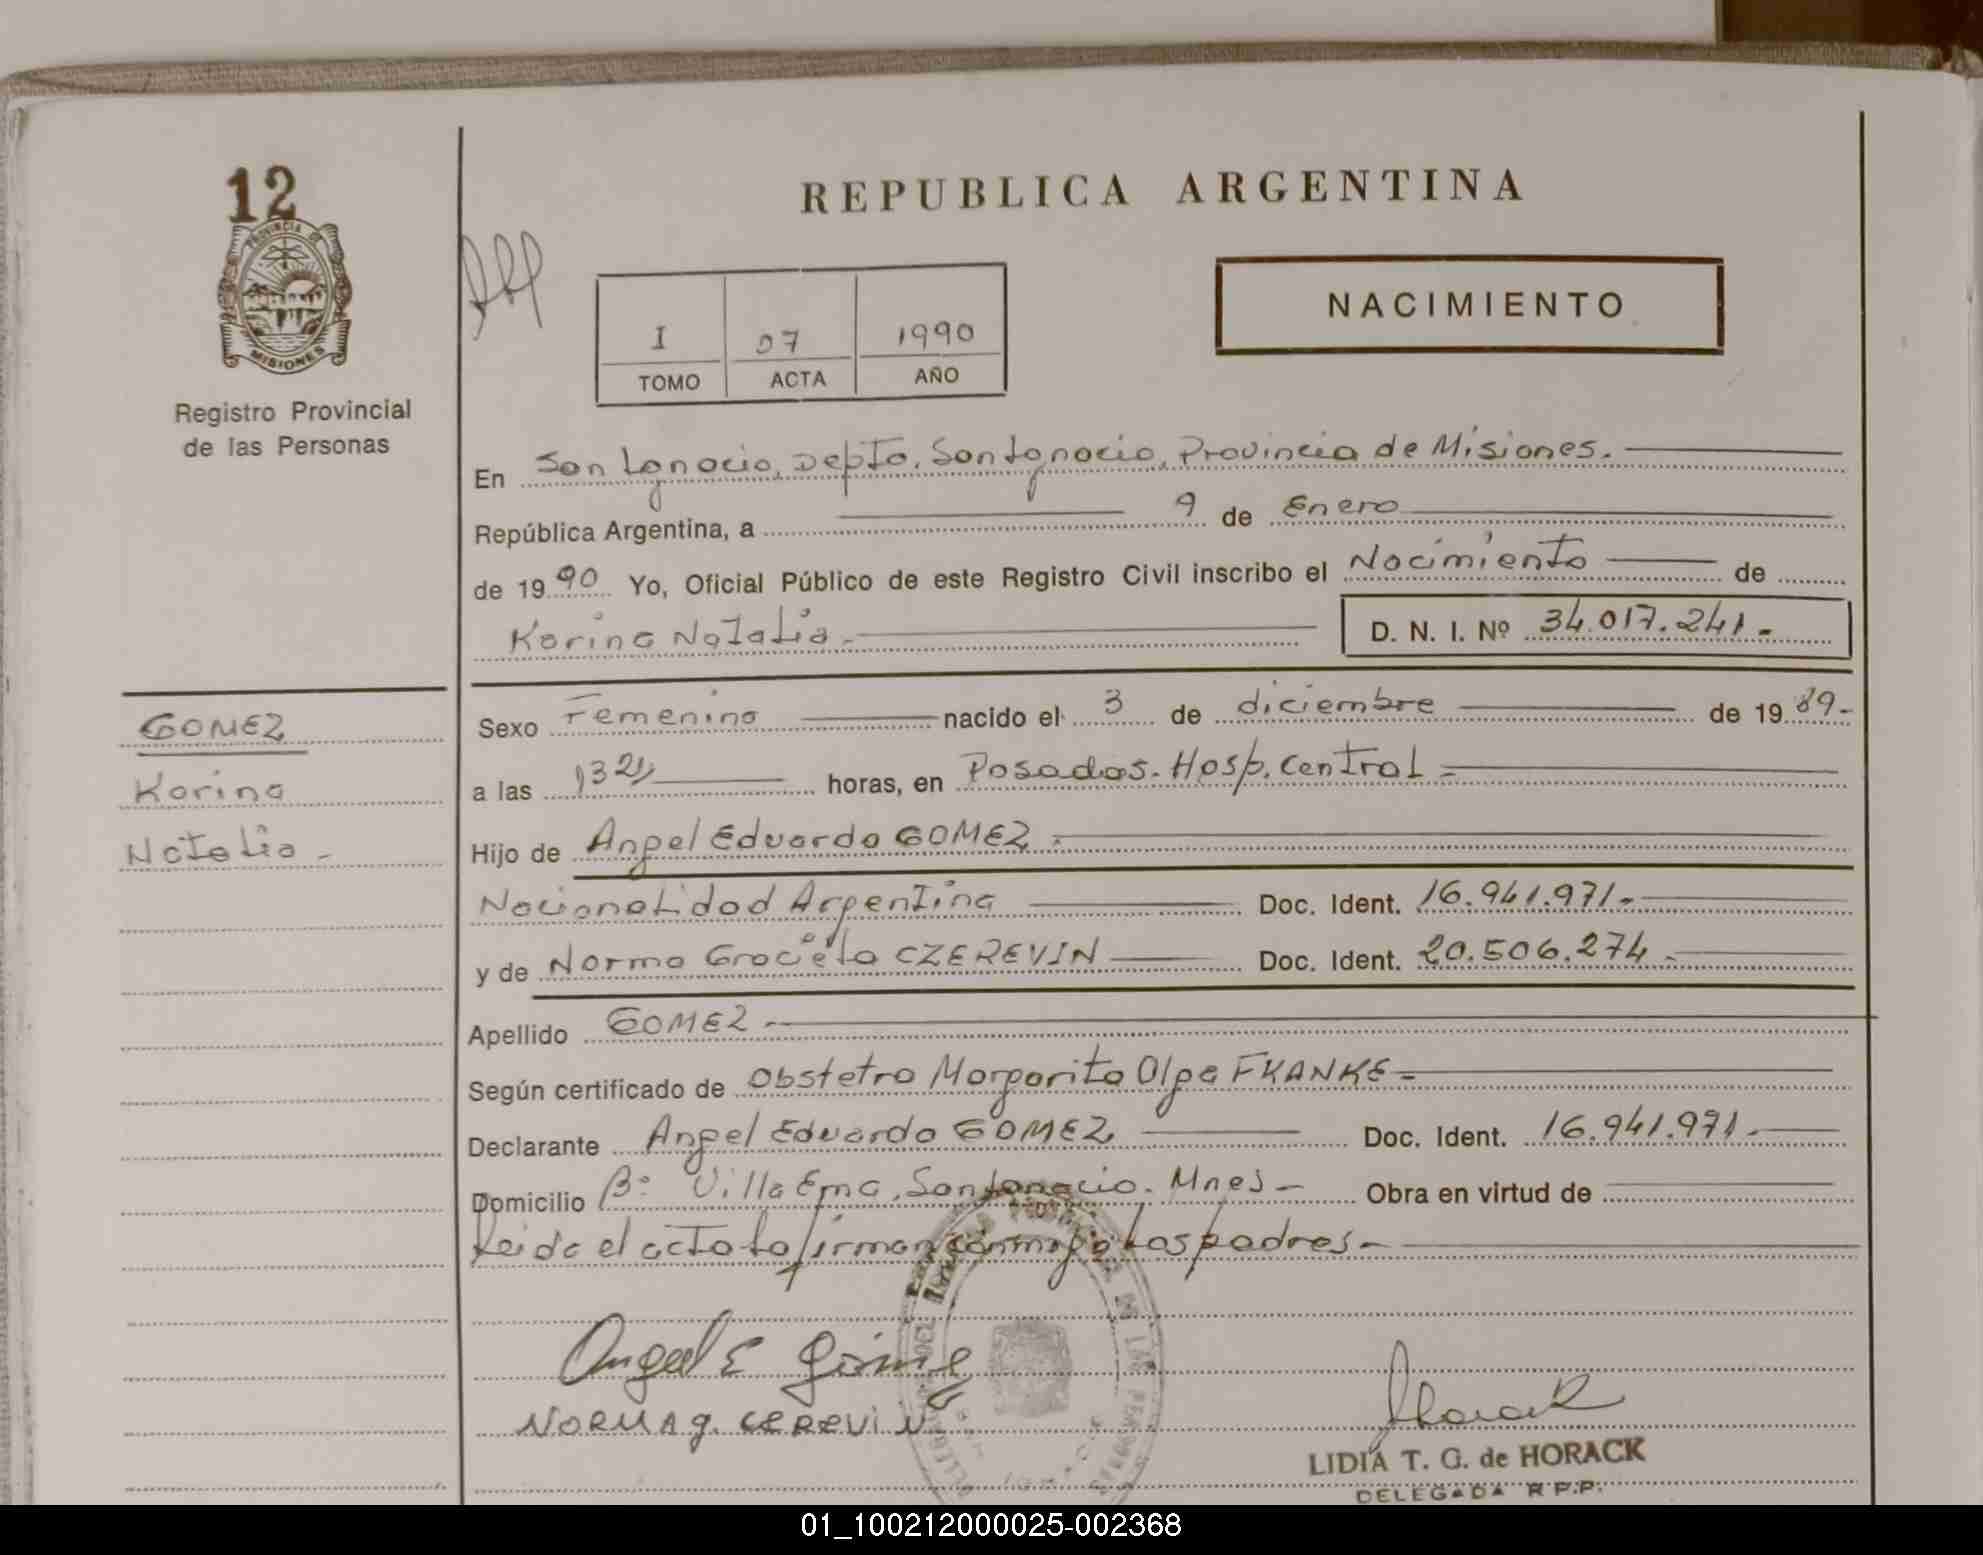 12
PROVINCIA DE
MISIONES
Registro Provincial
de las Personas
REPUBLICA ARGENTINA
I 07 1990
TOMO ACTA AÑO
NACIMIENTO
En San Ignacio, Depto. San Ignacio, Provincia de Misiones.
República Argentina, a 9 de Enero
de 1990 Yo, Oficial Público de este Registro Civil inscribo el Nacimiento de
Karina Natalia.- D. N. I. Nº 34.017.241.-
GOMEZ
Karina
Natalia -
Sexo Femenino nacido el 3 de diciembre de 1989-
a las horas, en Posadas. Hosp. Central -
Hijo de Angel Eduardo GOMEZ.
Nacionalidad Argentina Doc. Ident. 16.941.971.-
y de Norma Graciela CZEREVIN Doc. Ident. 20.506.274.-
Apellido GOMEZ.-
Según certificado de Obstetra Margarita Olga FRANKE-
Declarante Angel Eduardo GOMEZ Doc. Ident. 16.941.971.-
Domicilio Bº Villa Ema, San Ignacio. Mnes- Obra en virtud de
Leida el acta la firman conmigo los padres.-
Angel E Gómez
NORMA g. CEREVIN
LIDIA T. G. de HORACK
DELEGADA R.P.P.
01_100212000025-002368